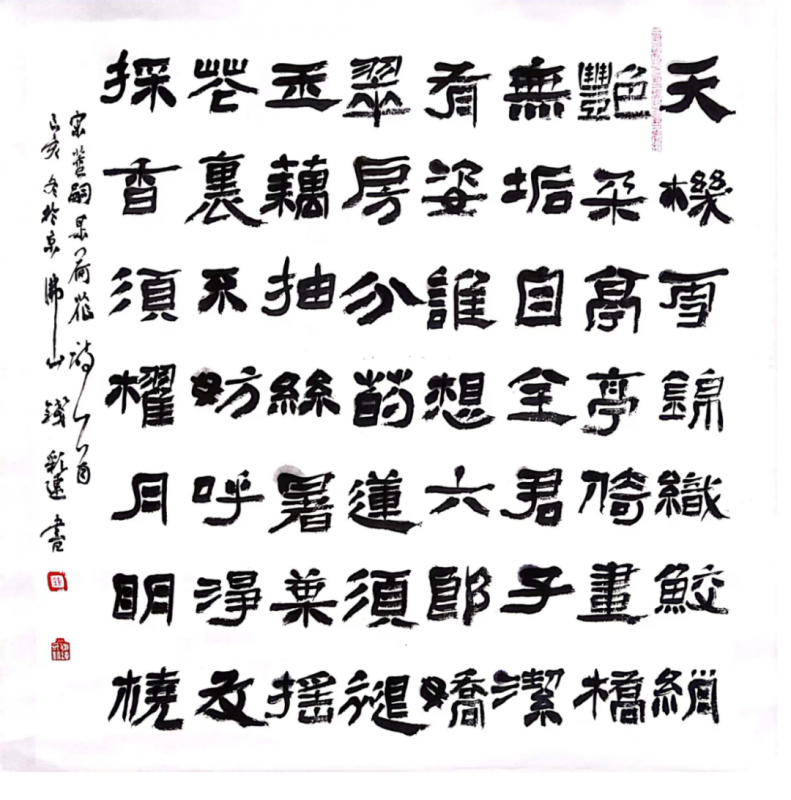 天機雪錦織鮫綃
艷朵亭亭倚畫橋
無垢自全君子潔
有姿誰想六郎嬌
翠房分菂蓮須褪
玉藕抽絲暑葉搖
花裏不妨呼淨友
採香須櫂月明橈
宋董嗣杲荷花詩一首
己亥冬於京佛山錢彩書